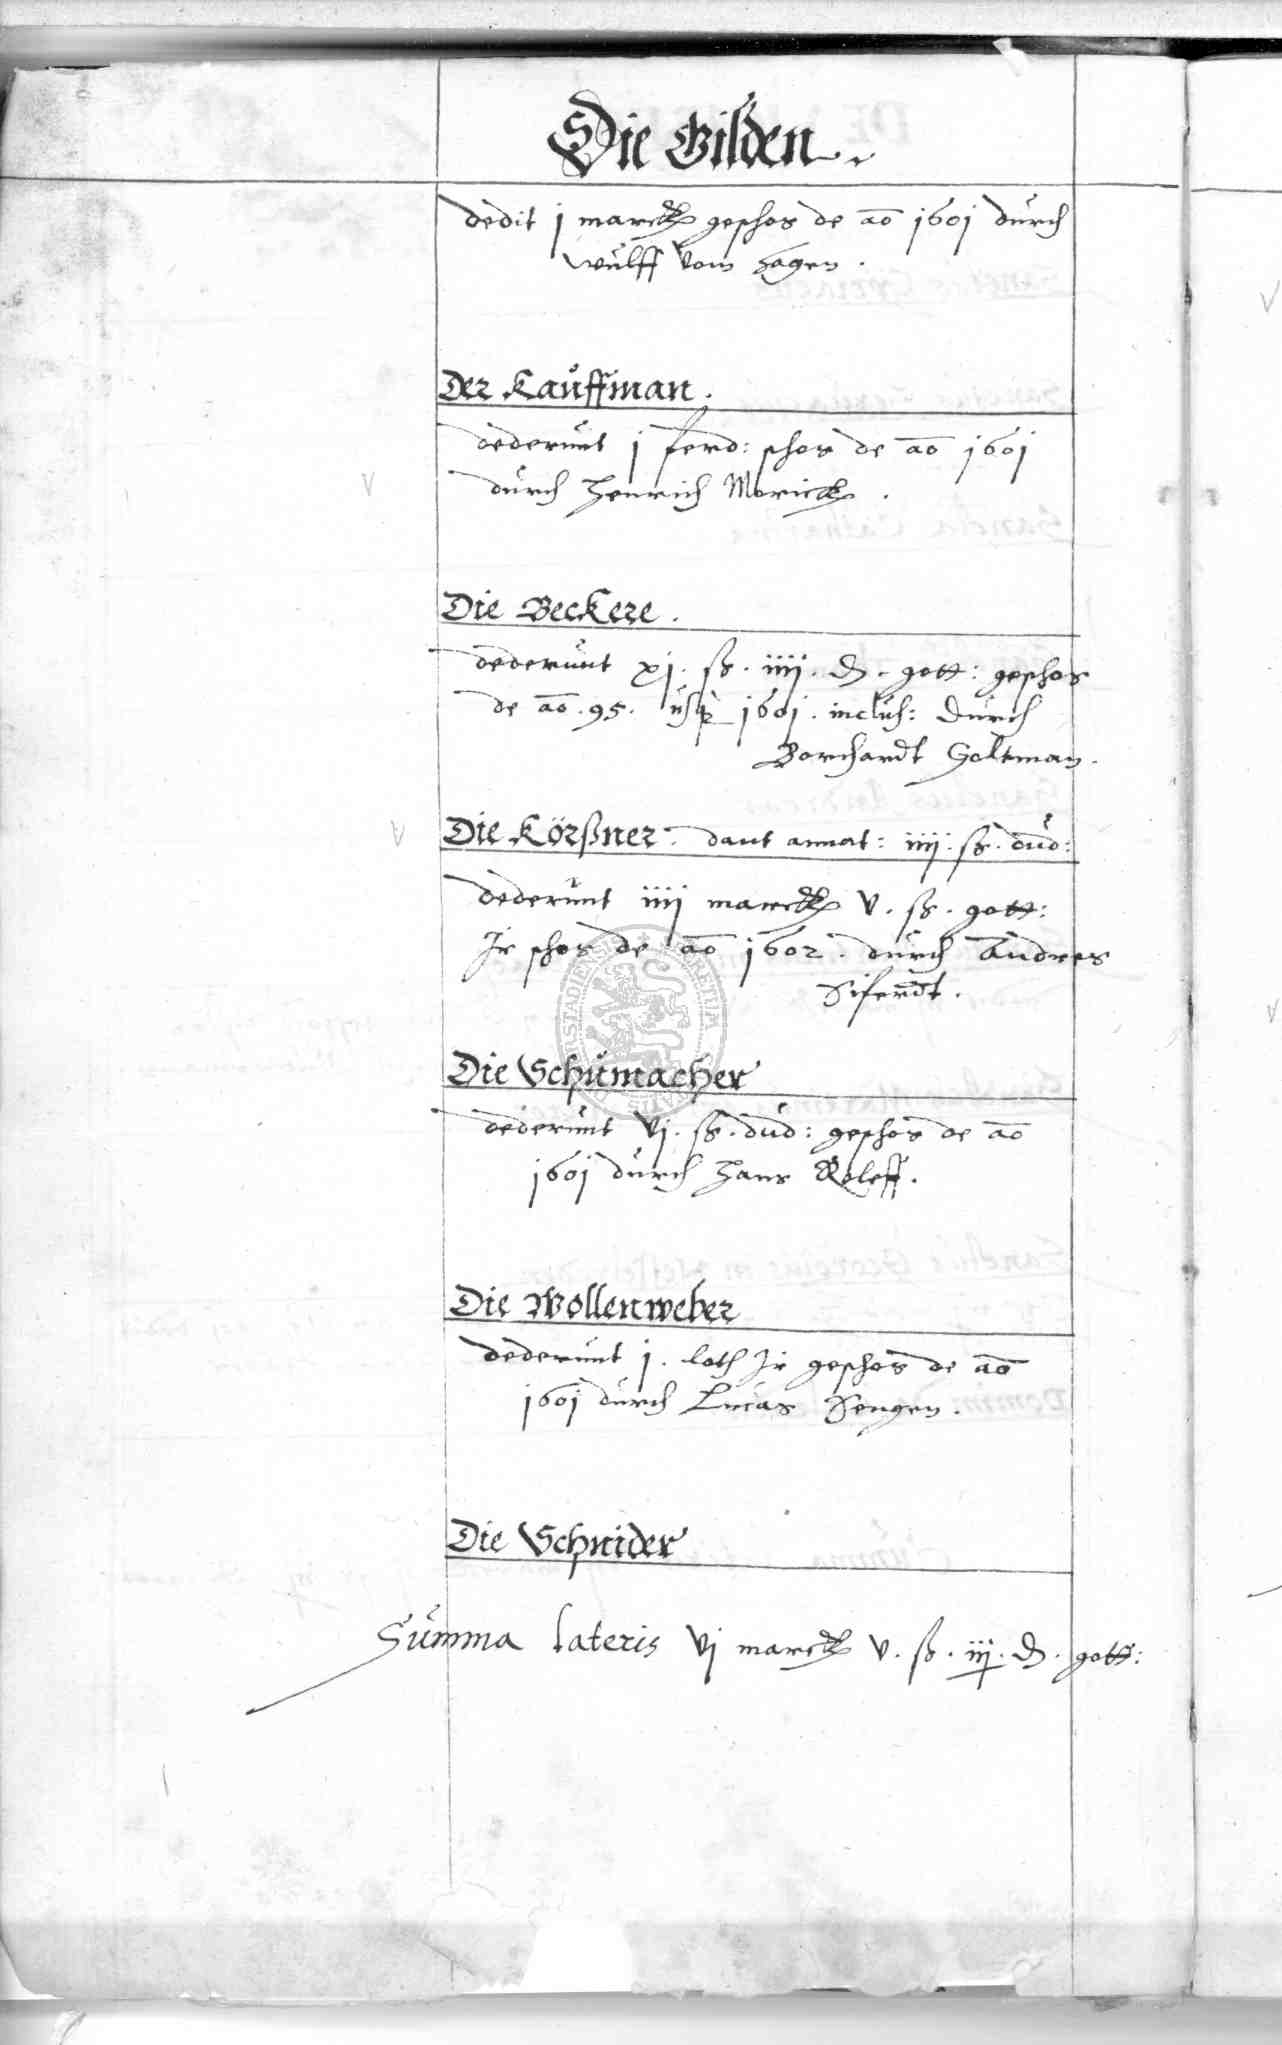 Die Gilden.
dedit j marck geschos de ao 1601 durch
Wulff vom Hagen.
Der Kauffman.
dederunt j ferd: schos de ao 1601
durch Henrich Morick.
Die Beckere.
dederunt xj. ß. iiij. d. gott: geschos
de ao. 95. usq 1601. inclus: durch
Borchardt Soltman.
Die Körßner. dant annat: iiij. ß. dud:
dederunt iiij marck v. ß. gott:
Jr schos de ao 1602. durch Andres
Siferdt.
Die Schumacher
dederunt vj. ß. dud: geschos de ao
1601 durch Hans Roleff.
Die Wollenweber
dederunt j. loth Jr geschos de ao
1601 durch Lucas Sengen.
Die Schnider
Summa lateris vj marck v. ß. iij. d. gott: